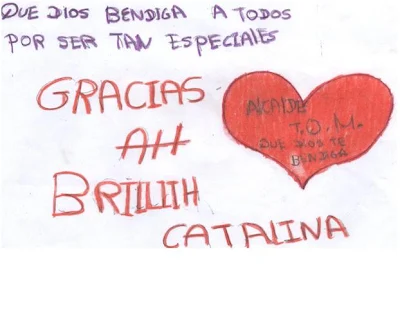 QUE DIOS BENDIGA A TODOS
POR SER TAN ESPECIALES
GRACIAS
AH
BRILLITH
CATALINA
ALCALDE
T.Q.M.
QUE DIOS TE
BENDIGA